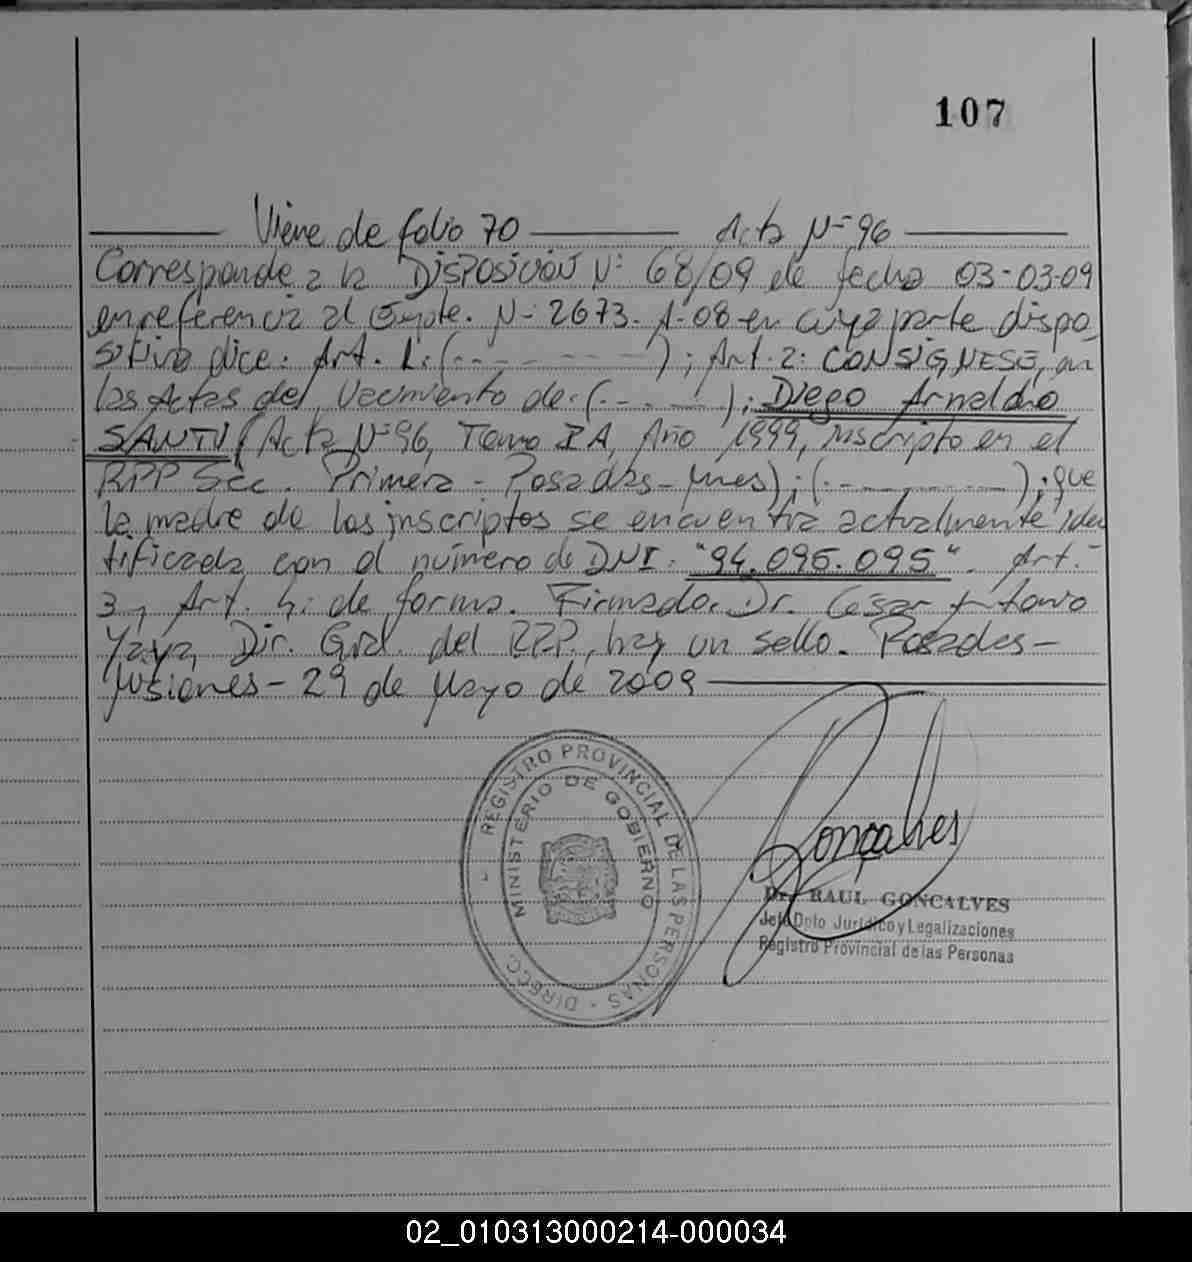 107
Viene de folio 70 Acta Nº 96
Corresponde a la Disposición Nº 68/09 de fecha 03-03-09
en referencia al Expte. Nº 2673-A-08 en cuya parte dispo
sitiva dice: Art. 1: (- - - - - -); Art. 2: CONSIGNESE, en
las Actas del Nacimiento de: (- - - -); Diego Arnaldo
SANTV (Acta Nº 96, Tomo I A, Año 1999, inscripto en el
RPP Sec. Primera - Posadas - Mnes); (- - - - - -); que
la madre de los inscriptos se encuentra actualmente iden
tificada con el número de DNI: "94.095.095". Art.
3 y Art. 4: de forma. Firmado. Dr. Cesar Antonio
Yaya, Dir. Gral. del RPP, hay un sello. Posadas -
Misiones - 29 de Mayo de 2009
REGISTRO PROVINCIAL DE LAS PERSONAS - DIRECC. -
MINISTERIO DE GOBIERNO
Goncalves
Dr. RAUL GONCALVES
Jefe Dpto Jurídico y Legalizaciones
Registro Provincial de las Personas
02_010313000214-000034